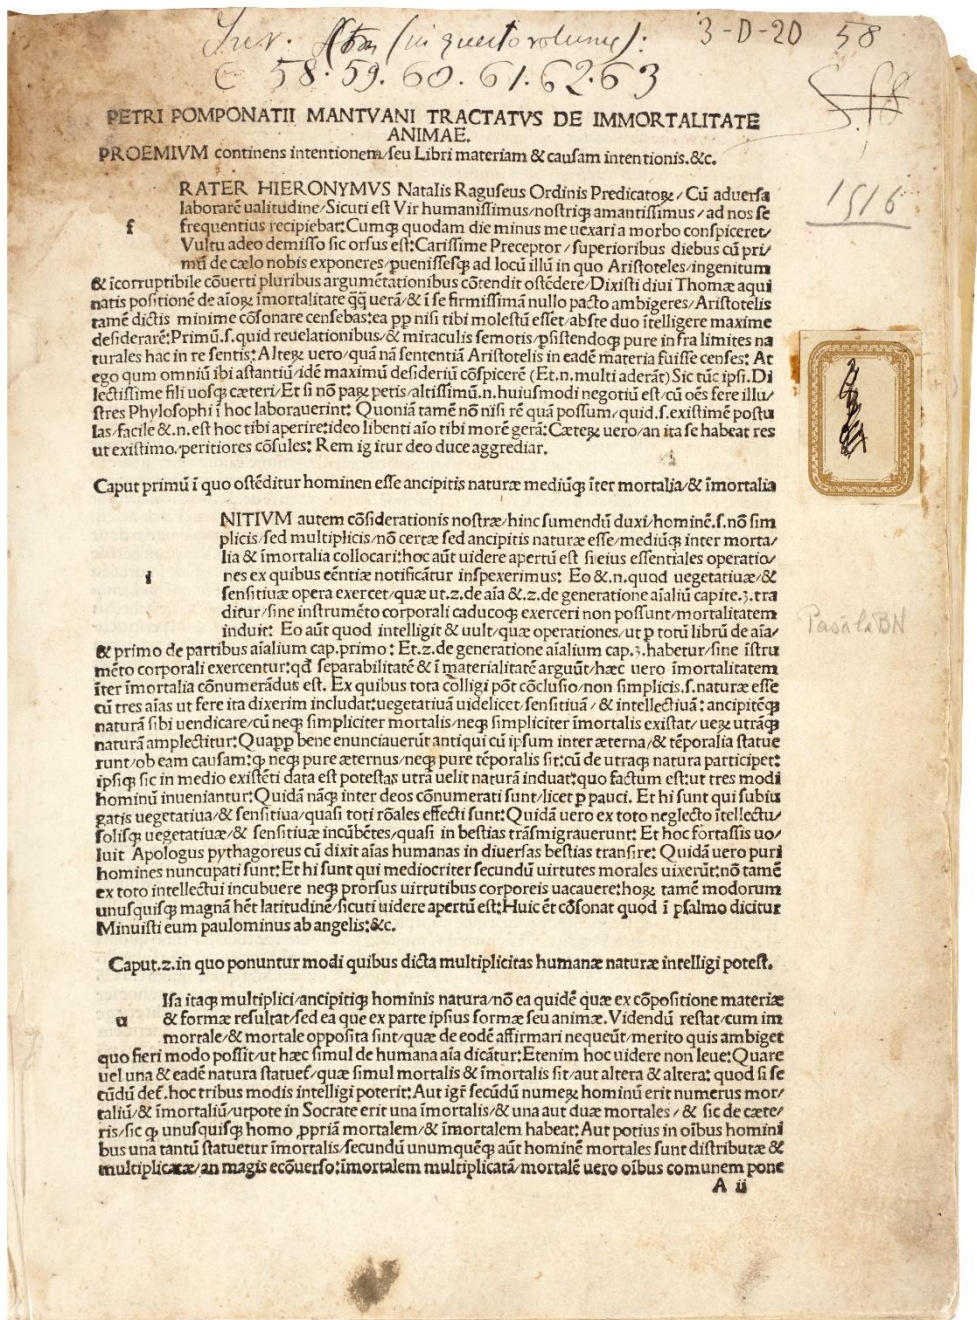 (in questo volume): 3-D-20 58
58. 59. 60. 61. 62. 63
PETRI POMPONATII MANTVANI TRACTATVS DE IMMORTALITATE
ANIMAE.
PROEMIVM continens intentionem/seu Libri materiam & causam intentionis.&c.
1516
f
RATER HIERONYMVS Natalis Raguseus Ordinis Predicatoꝝ/Cū aduersa
laborarē ualitudine/Sicuti est Vir humanissimus/nostriqꝫ amantissimus/ad nos se
frequentius recipiebat:Cumqꝫ quodam die minus me uexari a morbo conspiceret/
Vultu adeo demisso sic orsus est:Carissime Preceptor/superioribus diebus cū pri/
mū de cælo nobis exponeres/ꝑuenissesqꝫ ad locū illū in quo Aristoteles/ingenitum
& īcorruptibile cōuerti pluribus argumētationibus cōtendit ostēdere/Dixisti diui Thomæ aqui
natis positionē de aīoꝝ īmortalitate q̄q̄ uerā/& ī se firmissimā nullo pacto ambigeres/Aristotelis
tamē dictis minime cōsonare censebas:ea ꝓꝑ nisi tibi molestū esset/abs te duo ītelligere maxime
desiderarē:Primū.s.quid reuelationibus/& miraculis semotis/ꝑsistendoqꝫ pure infra limites na
turales hac in re sentis:Alteꝝ uero/quā nā sententiā Aristotelis in eadē materia fuisse censes: At
ego qum omniū ibi astantiū/idē maximū desideriū cōspicerē (Et.n.multi aderāt) Sic tūc ipsi.Di
lectissime fili uosqꝫ cæteri/Et si nō paꝝ petis/altissimū.n.huiusmodi negotiū est/cū oēs fere illu/
stres Phylosophi ī hoc laborauerint: Quoniā tamē nō nisi rē quā possum/quid.s.existimē postu
las/facile &.n.est hoc tibi aperire:ideo libenti aīo tibi morē gerā:Cæteꝝ uero/an ita se habeat res
ut existimo/peritiores cōsules: Rem igitur deo duce aggrediar.
Caput primū ī quo ostēditur hominen esse ancipitis naturæ mediūqꝫ īter mortalia/& īmortalia
i
NITIVM autem cōsiderationis nostræ/hinc sumendū duxi/hominē.s.nō sim
plicis/sed multiplicis/nō certæ sed ancipitis naturæ esse/mediūqꝫ inter morta/
lia & īmortalia collocari:hoc aūt uidere apertū est si eius essentiales operatio/
nes ex quibus eēntiæ notificātur inspexerimus: Eo &.n.quod uegetatiuæ/&
sensitiuæ opera exercet/quæ ut.2.de aīa &.2.de generatione aīaliū capite.3.tra
ditur/sine instrumēto corporali caducoqꝫ exerceri non possunt/mortalitatem
induit: Eo aūt quod intelligit & uult/quæ operationes/ut ꝑ totū librū de aīa/
& primo de partibus aīalium cap.primo: Et.2.de generatione aīalium cap.3.habetur/sine īstru
mēto corporali exercentur:qd̄ separabilitatē & ī materialitatē arguūt/hæc uero īmortalitatem
īter īmortalia cōnumerādus est. Ex quibus tota colligi pōt cōclusio/non simplicis.s.naturæ esse
cū tres aīas ut fere ita dixerim includat:uegetatiuā uidelicet/sensitiuā/& intellectiuā: ancipitēqꝫ
naturā sibi uendicare/cū neqꝫ simpliciter mortalis/neqꝫ simpliciter īmortalis existat/ueꝝ utrāqꝫ
naturā amplectitur:Quaꝓꝑ bene enunciauerūt antiqui cū ipsum inter æterna/& tēporalia statue
runt/ob eam causam:ꝙ neqꝫ pure æternus/neqꝫ pure tēporalis sit:cū de utraqꝫ natura participet:
ipsiqꝫ sic in medio existēti data est potestas utrā uelit naturā induat:quo factum est:ut tres modi
hominū inueniantur:Quidā nāqꝫ inter deos cōnumerati sunt/licet ꝑ pauci. Et hi sunt qui subiu
gatis uegetatiua/& sensitiua/quasi toti rōales effecti sunt:Quidā uero ex toto neglecto ītellectu/
solisqꝫ uegetatiuæ/& sensitiuæ incūbētes/quasi in bestias trāsmigrauerunt: Et hoc fortassis uo/
luit Apologus pythagoreus cū dixit aīas humanas in diuersas bestias transire: Quidā uero puri
homines nuncupati sunt:Et hi sunt qui mediocriter secundū uirtutes morales uixerūt:nō tamē
ex toto intellectui incubuere neqꝫ prorsus uirtutibus corporeis uacauere:hoꝝ tamē modorum
unusquisqꝫ magnā hēt latitudinē/sicuti uidere apertū est:Huic ēt cōsonat quod ī psalmo dicitur
Minuisti eum paulominus ab angelis:&c.
Caput.2.in quo ponuntur modi quibus dicta multiplicitas humanæ naturæ intelligi potest.
u
Isa itaqꝫ multiplici/ancipitiqꝫ hominis natura/nō ea quidē quæ ex cōpositione materiæ
& formæ resultat/sed ea que ex parte ipsius formæ seu animæ. Videndū restat/cum im
mortale/& mortale opposita sint/quæ de eodē affirmari nequeūt/merito quis ambiget
quo fieri modo possit/ut hæc simul de humana aīa dicātur:Etenim hoc uidere non leue:Quare
uel una & eadē natura statuet̄/quæ simul mortalis & īmortalis sit/aut altera & altera: quod si se
cūdū det̄.hoc tribus modis intelligi poterit: Aut igr̄ secūdū numeꝝ hominū erit numerus mor/
taliū/& īmortaliū/utpote in Socrate erit una īmortalis/& una aut duæ mortales/& sic de cæte/
ris/sic ꝙ unusquisqꝫ homo ꝓpriā mortalem/& īmortalem habeat: Aut potius in oībus homini
bus una tantū statuetur īmortalis/secundū unumquēqꝫ aūt hominē mortales sunt distributæ &
multiplicatæ/an magis ecōuerso:īmortalem multiplicatā/mortalē uero oībus comunem pone
A ii
Pasa a la BN